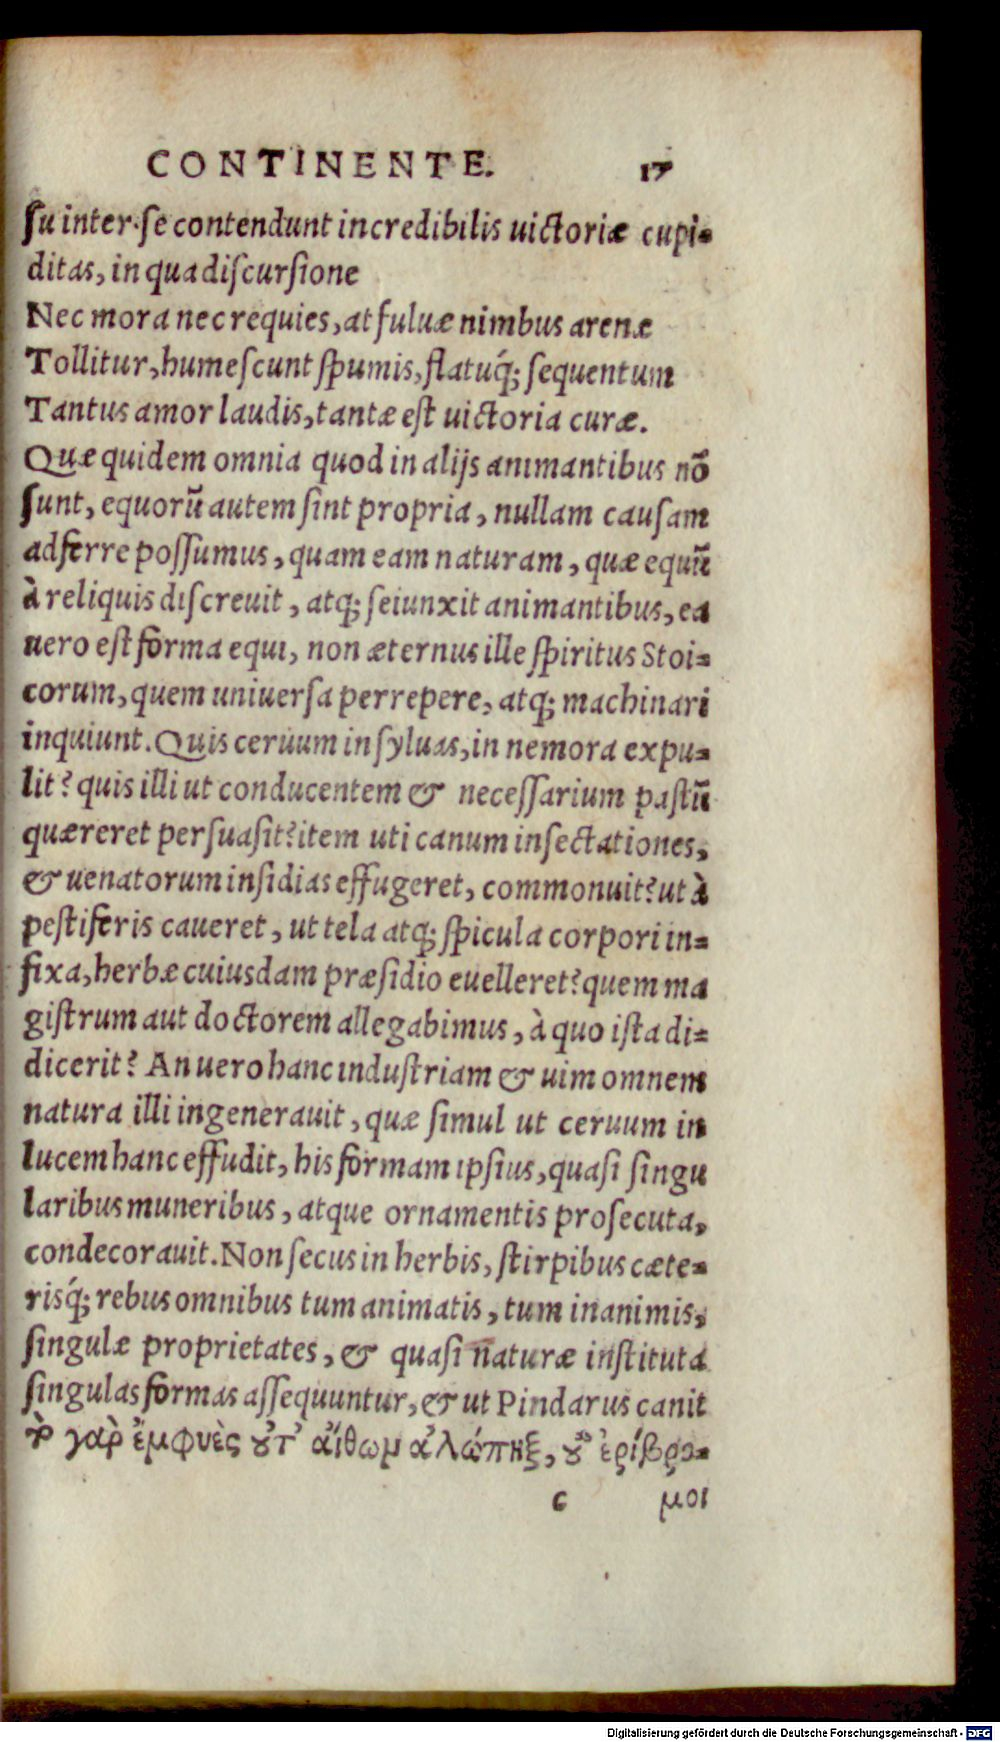 CONTINENTE. 17
ſu inter ſe contendunt incredibilis uictoriæ cupi-
ditas, in qua diſcurſione
Nec mora nec requies, at fuluæ nimbus arenæ
Tollitur, humeſcunt ſpumis, flatuq́; ſequentum
Tantus amor laudis, tantæ eſt uictoria curæ.
Quæ quidem omnia quod in alijs animantibus nõ
ſunt, equorũ autem ſint propria, nullam cauſam
adferre poſſumus, quam eam naturam, quæ equũ
à reliquis diſcreuit, atq; ſeiunxit animantibus, ea
uero eſt forma equi, non æternus ille ſpiritus Stoi-
corum, quem uniuerſa perrepere, atq; machinari
inquiunt. Quis ceruum in ſyluas, in nemora expu-
lit? quis illi ut conducentem & neceſſarium paſtũ
quæreret perſuaſit? item uti canum inſectationes,
& uenatorum inſidias effugeret, commonuit? ut à
peſtiferis caueret, ut tela atq; ſpicula corpori in-
fixa, herbæ cuiusdam præſidio euelleret? quem ma
giſtrum aut doctorem allegabimus, à quo iſta di-
dicerit? An uero hanc induſtriam & uim omnem
natura illi ingenerauit, quæ ſimul ut ceruum in
lucem hanc effudit, his formam ipſius, quaſi ſingu
laribus muneribus, atque ornamentis proſecuta,
condecorauit. Non ſecus in herbis, ſtirpibus cæte-
risq́; rebus omnibus tum animatis, tum inanimis,
ſingulæ proprietates, & quaſi naturæ inſtituta
ſingulas formas aſſequuntur, & ut Pindarus canit
γὰρ ἐμφυὲς ȣ̓τ' αἴθωμ ἀλώπηξ, ȣ̓δ' ἐρίβρο-
c μοι
Digitalisierung gefördert durch die Deutsche Forschungsgemeinschaft - DFG